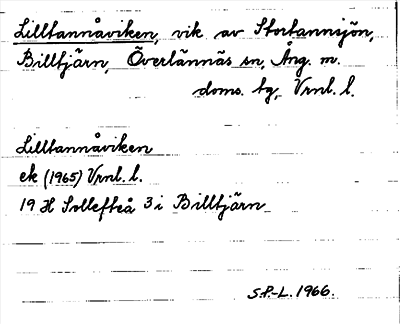 Lilltannåviken, vik av Stortannsjön,
Billtjärn, Överlännäs sn, Ång. m.
doms. tg, Vrml. l.
Lilltannåviken
ek (1965) Vrnl. l.
19 H Sollefteå 3 i Billtjärn
S.P.-L. 1966.